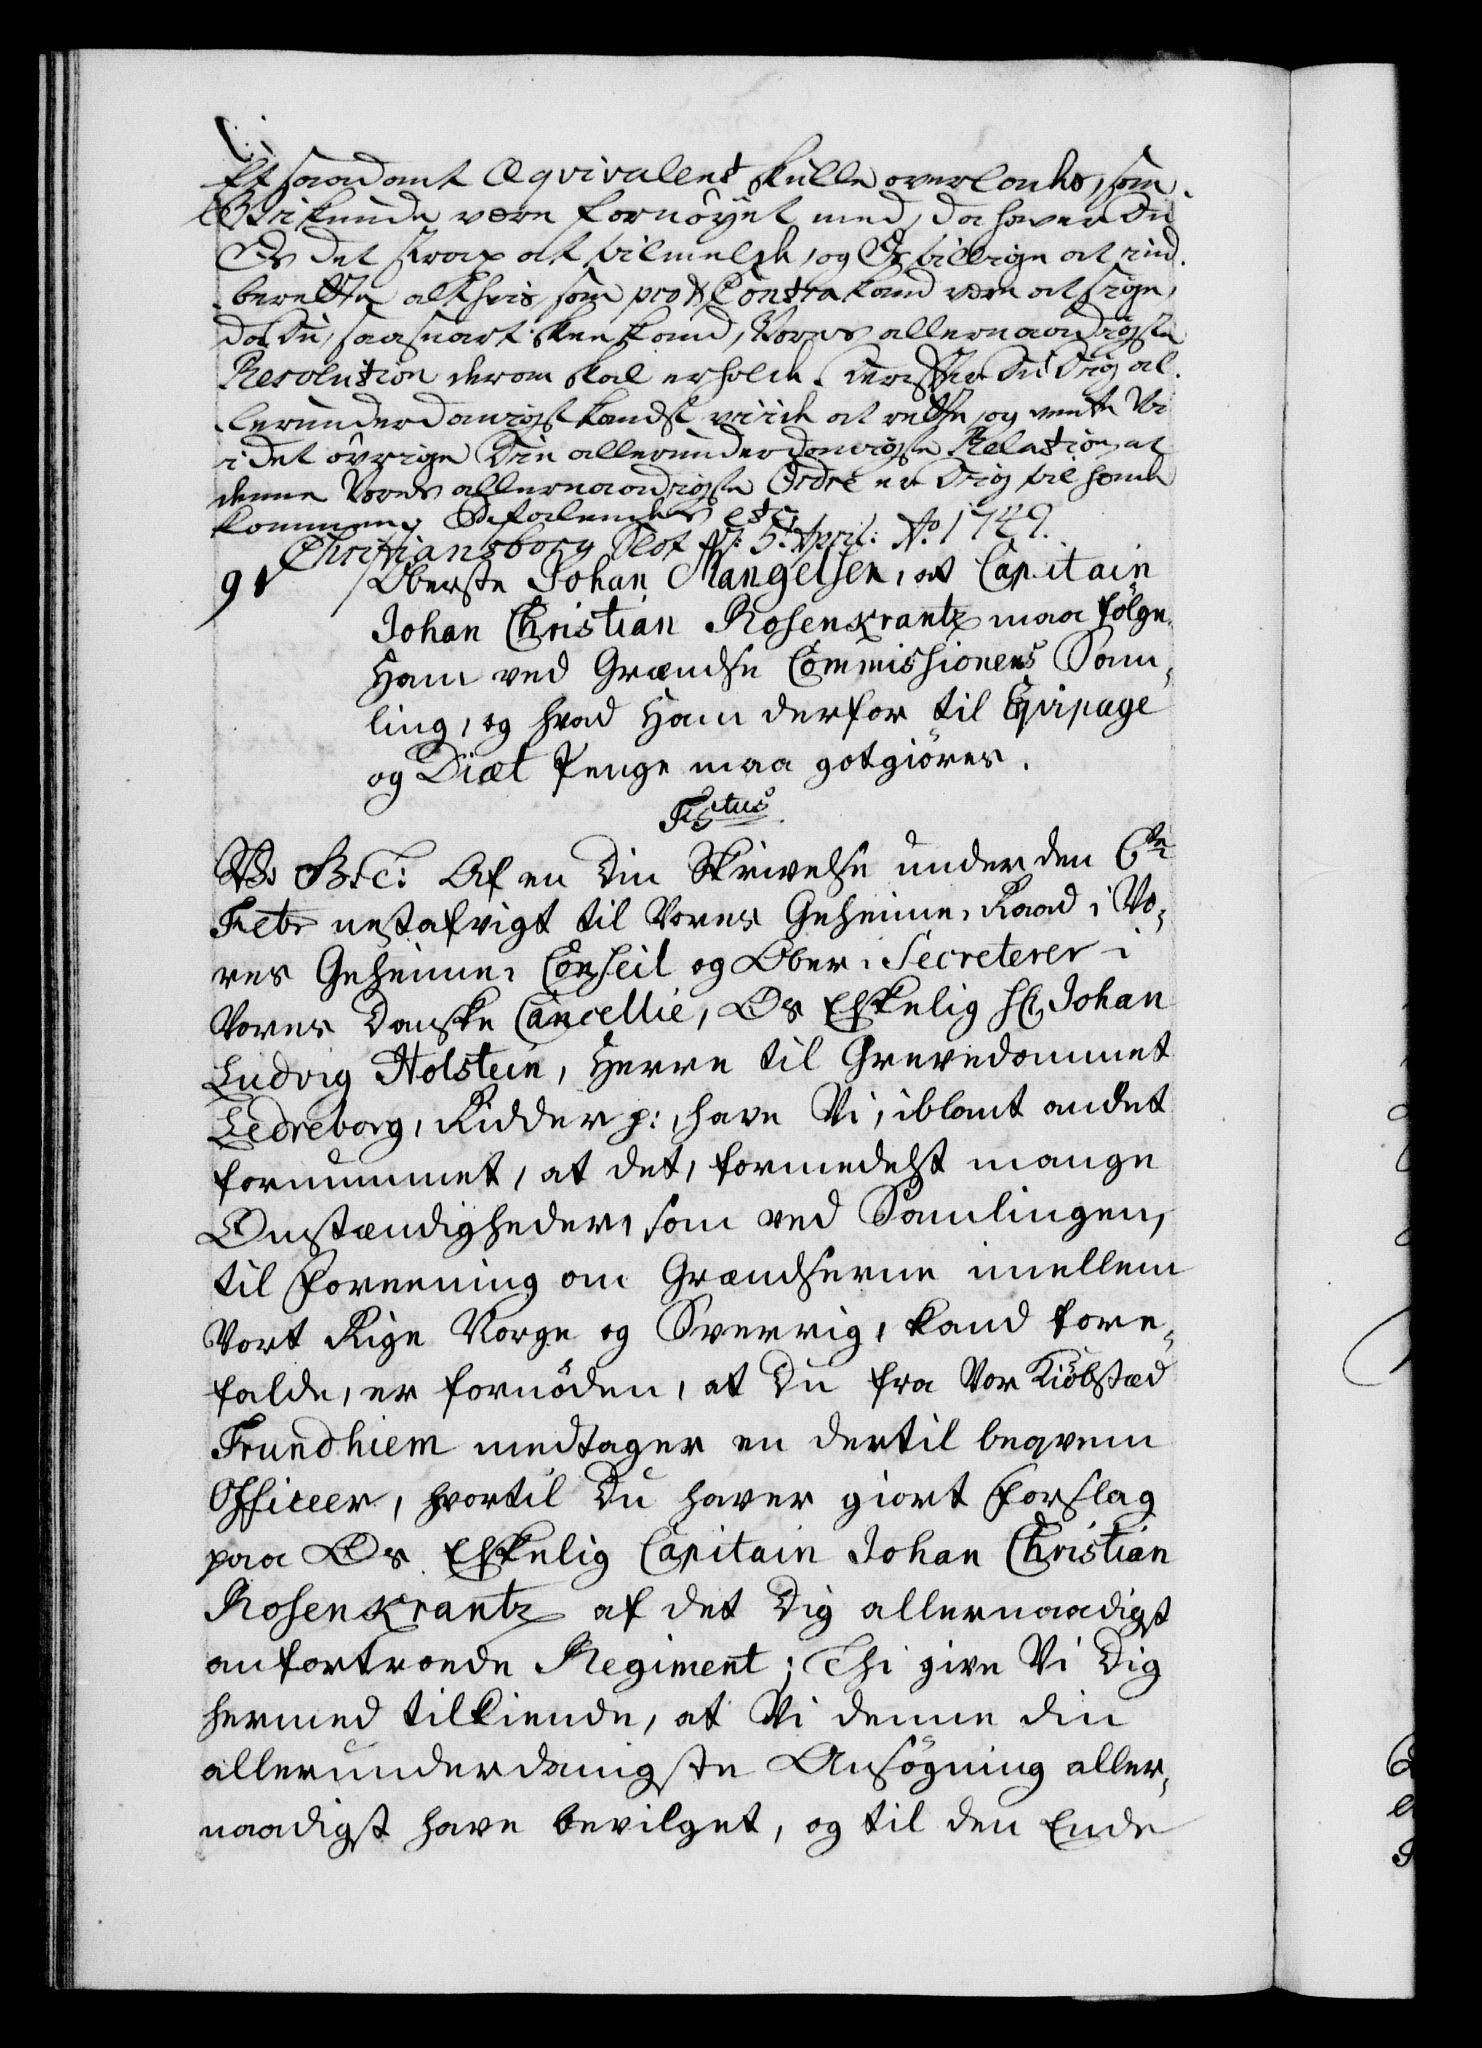 Et saadant Æqvivalent skulle overlades, som
Vi kunde være fornöyet med, da haver Du
Os det strax at tilmelde, og Os tillige at ind-
berette alt hvis, som pro & Contra kand være at sige,
da Du, saasnart skee kand, Vores allernaadigste
Resolution derom skal erholde. Derefter Du Dig al-
lerunderdanigst kandst viide at rette, og vente Vi
i det övrige Din allerunderdanigste Relation, at
denne Vores allernaadigste Ordre er Dig til hænde
kommen, Befalendes etc.
Christiansborg Slot d: 5: April: Ao 1749.
91 Oberste Johan Mangelsen, at Capitain
Johan Christian Rosenkrantz maa fölge
Ham ved Grændse Commissionens Sam-
ling, og hvad Ham derfor til Eqvipage
og Diæt Penge maa gotgiöres.
F5tus
V. G. T: Af en Din Skrivelse under den 6te
Febr nestafvigt til Vores Geheime-Raad i Vo-
res Geheime-Conseil og Ober-Secreterer i
Vores Danske Cancellie, Os Elskelig Hr Johan
Ludvig Holstein, Herre til Grevedommet
Ledreborg, Ridder p:, have Vi, iblant andet
fornummet, at det, formedelst mange
Omstændigheder, som ved Samlingen,
til Foreening om Grændserne imellem
Vort Rige Norge og Sverrig, kand fore-
falde, er fornöden, at Du fra Vor Kiöbstæd
Trundhiem medtager en dertil beqvem
Officeer, hvortil Du haver giort Forslag
paa Os Elskelig Capitain Johan Christian
Rosenkrantz af det Dig allernaadigst
anfortroede Regiment; Thi give Vi Dig
hermed tilkiende, at Vi denne din
allerunderdanigste Ansögning aller-
naadigst have bevilget, og til den Ende